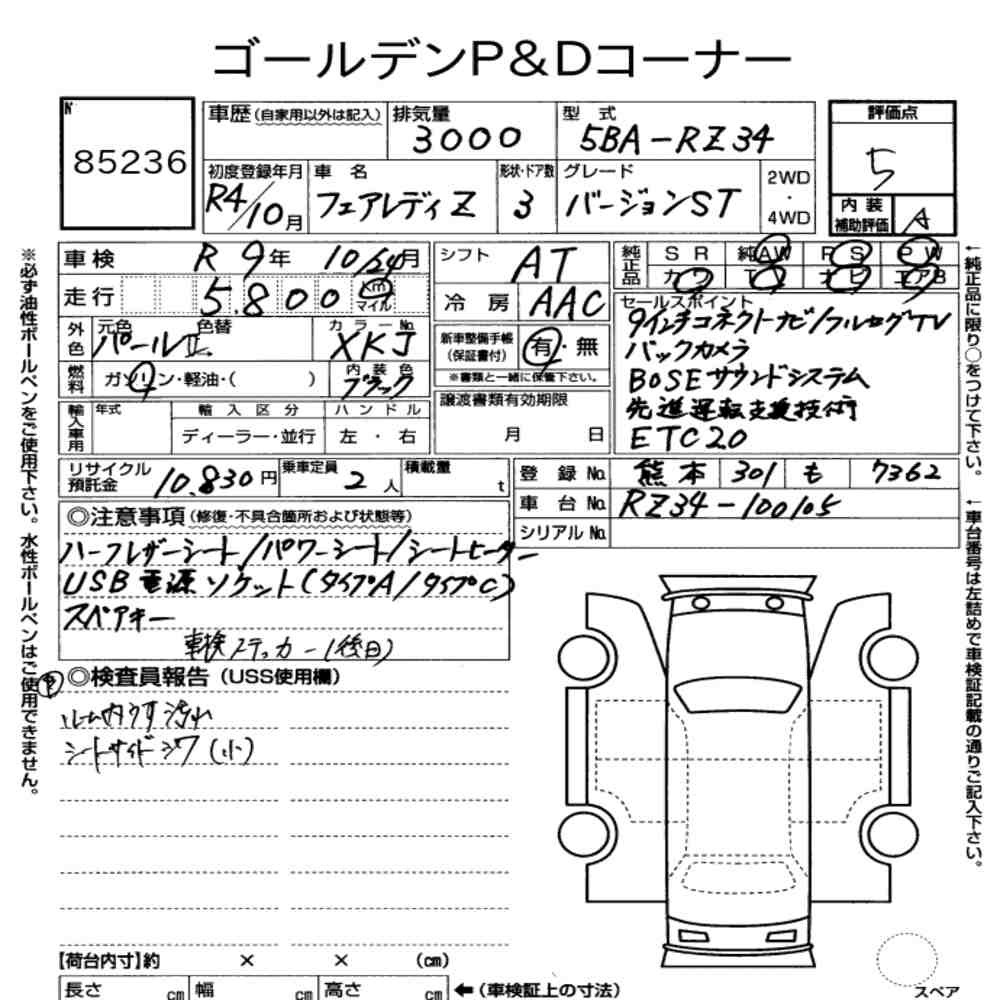 ゴールデンP&Dコーナー
№
85236
車歴(自家用以外は記入)
排気量
3000
型式
5BA-RZ34
評価点
5
初度登録年月
R4/10月
車名
フェアレディZ
形状・ドア数
3
グレード
バージョンST
2WD
・
4WD
内装
補助評価
A
車検 R9年 10/24月
シフト AT
純正品
SR 純AW PS PW
カワ TV ナビ エアB
走行 5.800 km
マイル
冷房 AAC
セールスポイント
9インチコネクトナビ/フルセグTV
バックカメラ
BOSEサウンドシステム
先進運転支援技術
ETC2.0
外色
元色 色替
パールII
カラーNo.
XKJ
新車整備手帳
(保証書付)
有・無
※書類と一緒に保管下さい。
燃料
ガソリン・軽油・( )
内装色
ブラック
譲渡書類有効期限
月 日
輸入車用
年式
輸入区分
ハンドル
ディーラー・並行
左・右
リサイクル
預託金
10.830円
乗車定員
2人
積載量
t
登録No. 熊本 301 も 7362
車台No. RZ34-100105
シリアルNo.
◎注意事項(修復・不具合箇所および状態等)
ハーフレザーシート/パワーシート/シートヒーター
USB電源ソケット(タイプA/タイプC)
スペアキー
車検ステッカー(後日)
◎検査員報告(USS使用欄)
ルーム内うす汚れ
シートサイドシワ(小)
【荷台内寸】約 × × (cm)
長さ cm 幅 cm 高さ cm
←(車検証上の寸法)
スペア
※必ず油性ボールペンをご使用下さい。水性ボールペンはご使用できません。
←純正品に限り○をつけて下さい。
←車台番号は左詰めで車検証記載の通りご記入下さい。